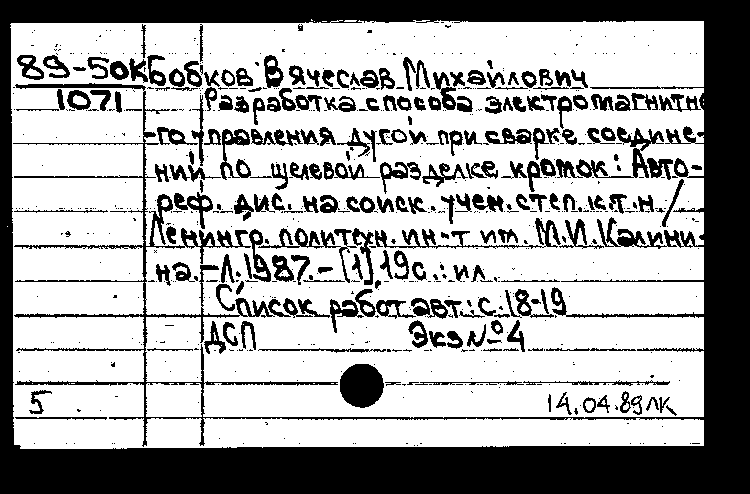 89-50к Бобков Вячеслав Михайлович
1071 Разработка способа электромагнитно
-го управления дугой при сварке соедине-
ний по щелевой разделке кромок: Авто-
реф. дис. на соиск. учен. степ. к.т.н. /
Ленингр. политехн. ин-т им. М.И. Калини-
на. - Л. 1987. - [1] 19 с. : ил.
Список работ авт.: с. 18-19
ДСП Экз № 4
5 14.04.89 ЛК